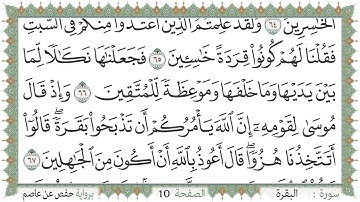 ٱلْخَٰسِرِينَ ٦٤ وَلَقَدْ عَلِمْتُمُ ٱلَّذِينَ ٱعْتَدَوْا۟ مِنكُمْ فِى ٱلسَّبْتِ
فَقُلْنَا لَهُمْ كُونُوا۟ قِرَدَةً خَٰسِـِٔينَ ٦٥ فَجَعَلْنَٰهَا نَكَٰلًا لِّمَا
بَيْنَ يَدَيْهَا وَمَا خَلْفَهَا وَمَوْعِظَةً لِّلْمُتَّقِينَ ٦٦ وَإِذْ قَالَ
مُوسَىٰ لِقَوْمِهِۦٓ إِنَّ ٱللَّهَ يَأْمُرُكُمْ أَن تَذْبَحُوا۟ بَقَرَةً ۖ قَالُوٓا۟
أَتَتَّخِذُنَا هُزُوًا ۖ قَالَ أَعُوذُ بِٱللَّهِ أَنْ أَكُونَ مِنَ ٱلْجَٰهِلِينَ ٦٧
سورة : البقرة الصفحة 10 برواية حفص عن عاصم